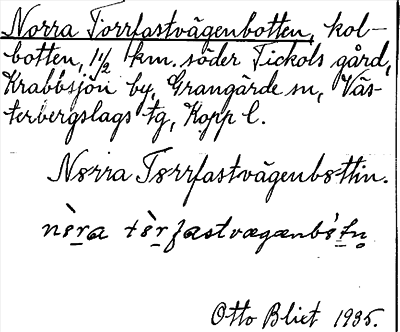 Norra Torrfastvägenbotten, kol-
botten, 1 1/2 km. söder Tickols gård,
Krabbsjön by, Grangärde sn, Väs-
terbergslags tg, Kopp l.
Norra Torrfastvägenbottin.
Otto Blixt 1935.